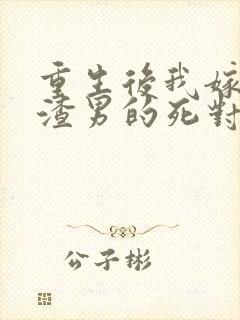 重生後我嫁
渣男的死對
公子彬